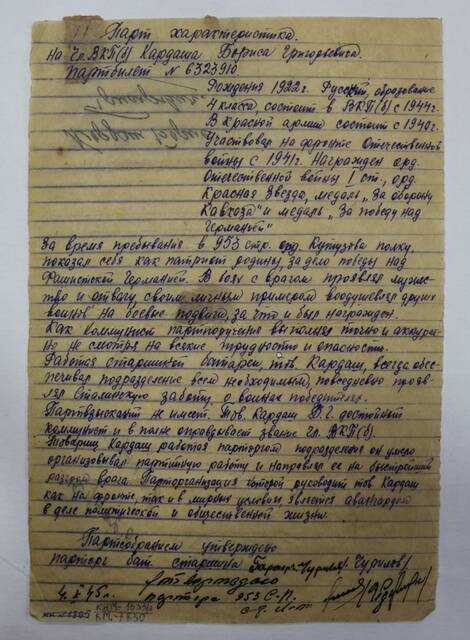 Парт характеристика.
на Чл. ВКП(б) Кардаша Бориса Григорьевича.
партбилет № 6323910
Рождения 1922 г. Русский, образование
4 класса, состоит в ВКП(б) с 1944 г.
В красной армии состоит с 1940 г.
Участвовал на фронте Отечественной
войны с 1941 г. Награжден орд.
Отечественной войны I ст., орд.
Красная Звезда, медаль „За оборону
Кавказа" и медаль „За победу над
Германией"
За время пребывания в 953 стр. орд. Кутузова полку,
показал себя как патриот родины, за дело победы над
Фашистской Германией. В боях с врагом проявлял мужес-
тво и отвагу, своим личным примером воодушевлял других
воинов на боевые подвиги, за что и был награжден.
Как коммунист партпоручения выполнял точно и аккурат-
но не смотря на всякие трудности и опасность.
Работая старшиной батареи, тов. Кардаш, всегда обес-
печивал подразделение всем необходимым, повседневно прояв-
лял Сталинскую заботу, о воинах победителях.
Партвзысканий не имеет. Тов. Кардаш Б.Г. достойный
коммунист и вполне оправдывает звание Чл. ВКП(б).
Товарищ Кардаш работая парторгом подразделение он умело
организовывал партийную работу и направлял ее на быстрейший
разгром врага. Парторганизация которой руководит тов Кардаш
как на фронте, так и в мирных условиях является авангардом
в деле политической и общественной жизни.
Партсобранием утверждено
парторг бат. старшина Чурилов/
парторга 953 С.П.
4. X 45 г.